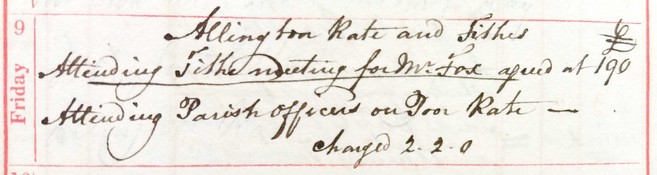 9
Friday
Allington Rate and Tithes
Attending Tithe meeting for Mr. Fox agreed at 190
Attending Parish Officers on Poor Rate —
charged 2. 2. 0